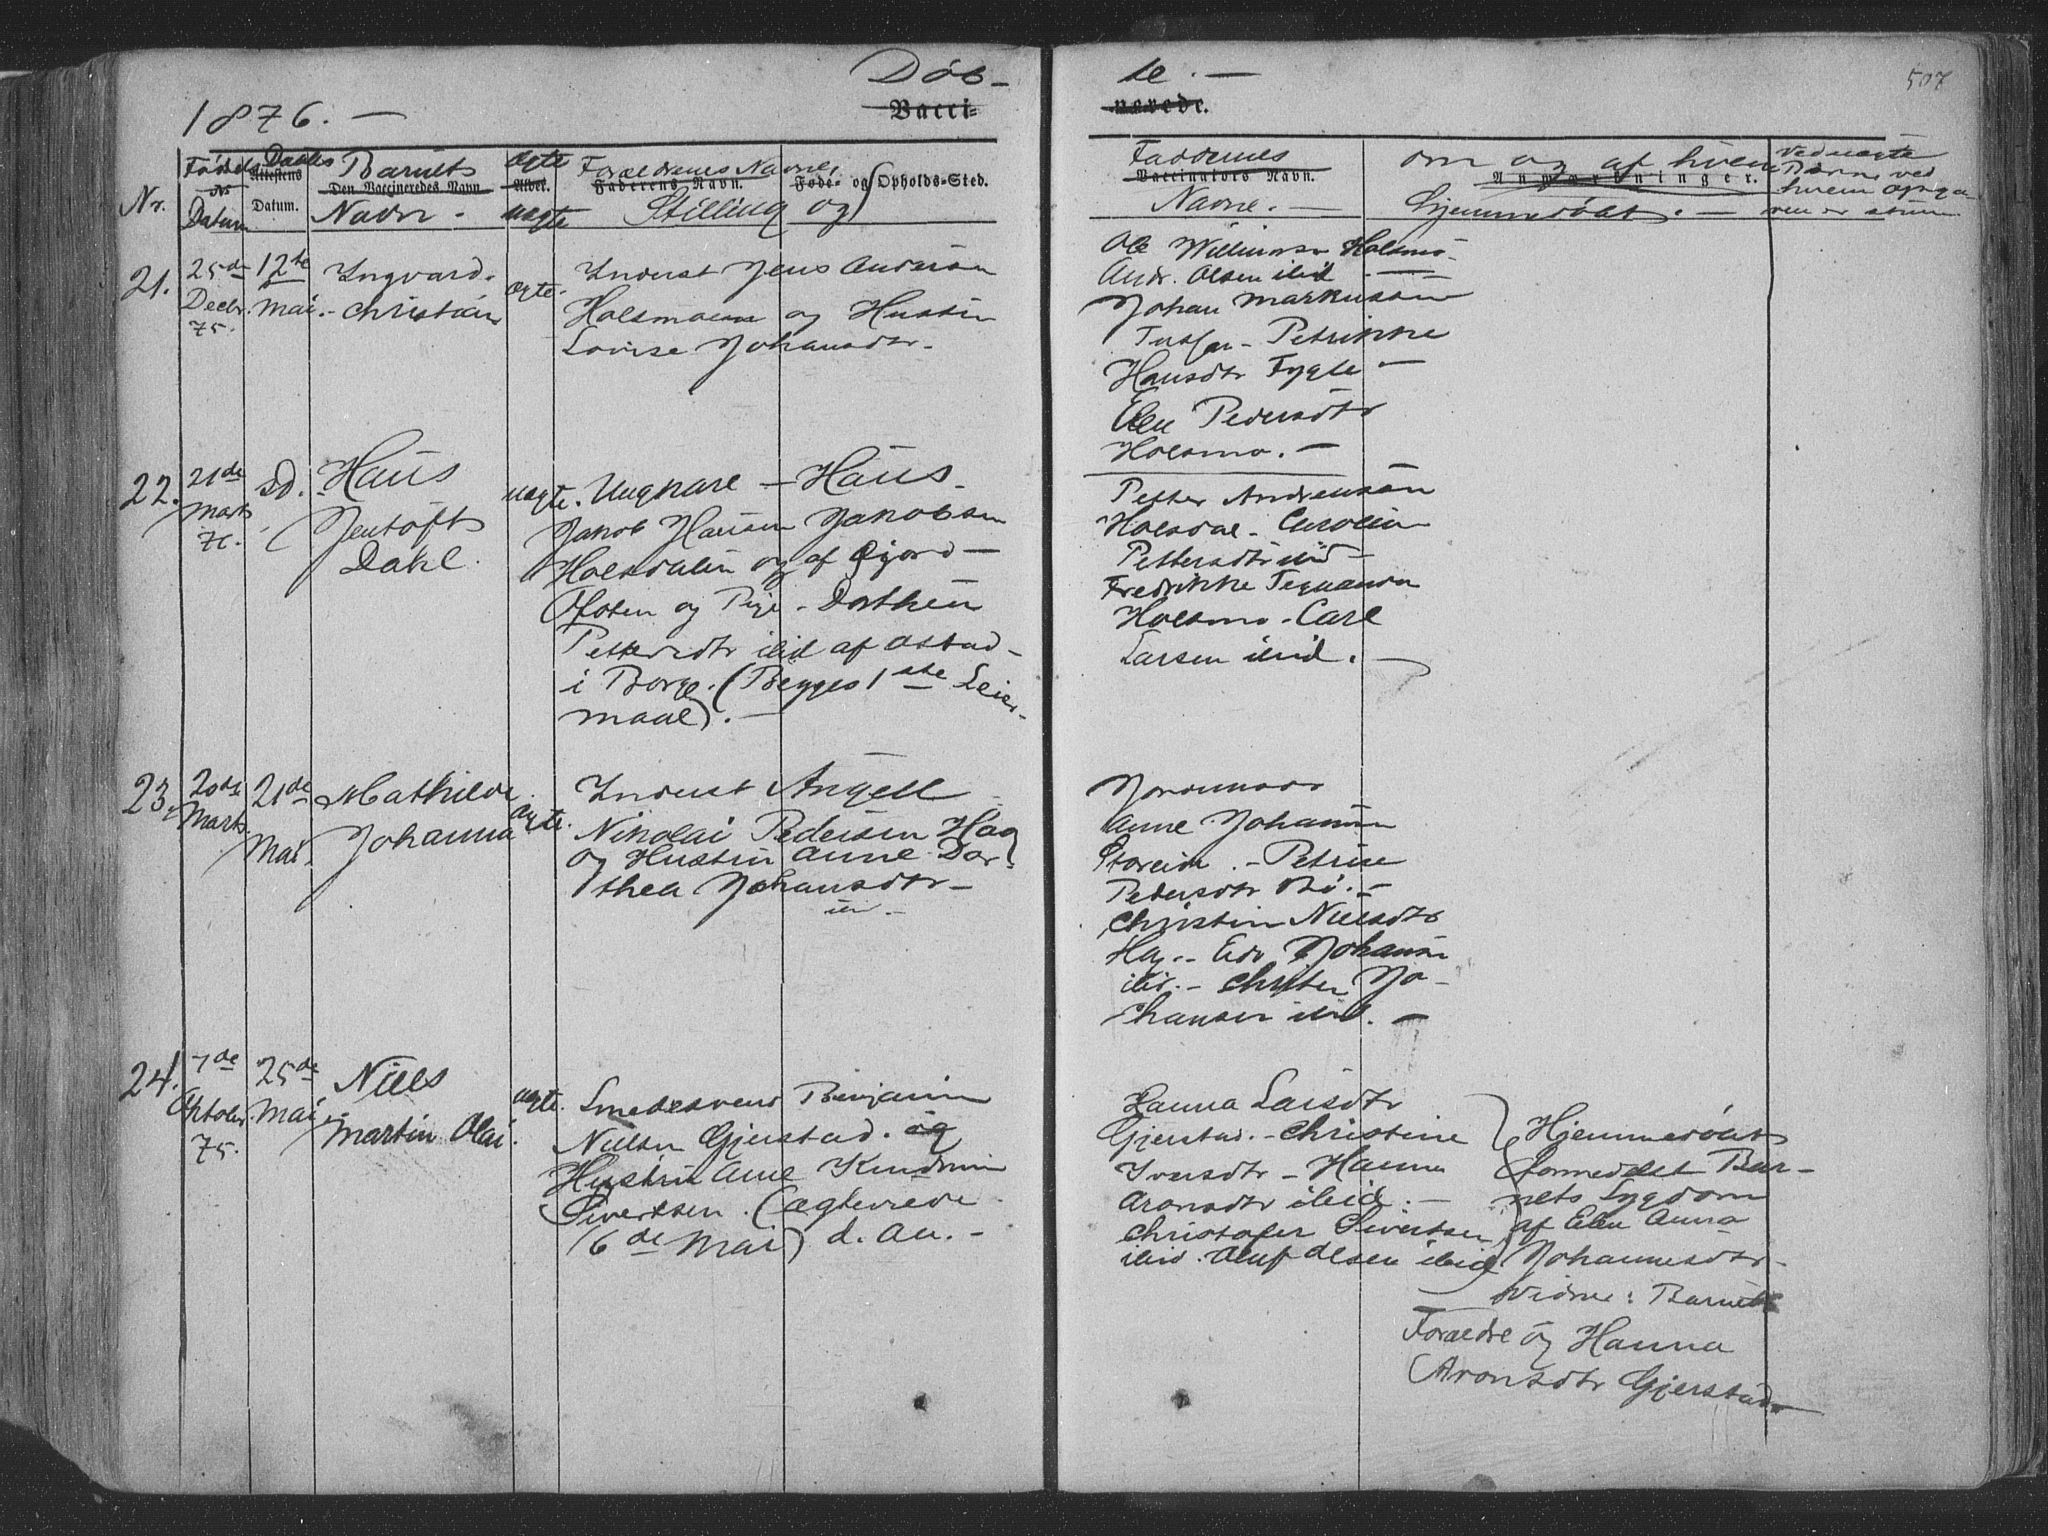 507
Døb-
te. —
1876. —
Vacci-
nerede.
Nr.
Fødsels
Nr
Datum
Daabs
Attestens
Datum.
Barnets
Den Vaccineredes Navn
Navn.
Ægte
Alder.
uægte
Forældrenes Navne,
Faderens Navn. Føde- og Opholds-Sted.
Stilling og
Faddernes
Vaccinators Navn.
Navne. —
om og af hvem
Anmærkninger.
hjemmedøbt. —
Ved uægte
Børn ved
hvem
21.
25de
Decbr.
75.
12te
Mai.
Ingvard.
Christian
Ægte.
Inderst Jens Anderson
Holsmoen og Hustru
Lovise Johansdtr.
Ole Willumsen Holsmo.
Andr. Olsen ibid. —
Johan Markusson
Petrikke
Hansdtr Fygle —
Elen Pedersdtr
Holsmo. —
22.
21de
Marts
76.
sd.
Hans
Jentoft
Dahl.
uægte.
Ungkarl — Hans
Jakob Hansen Jakobsen
Holsdalen og af Fjord —
Ofoten og Pige — Dorthea
Pettersdtr ibid af Østad
i Borge. (Begges 1ste Leier-
maal). —
Petter Andreassen
Holsdal. Carolia
Pettersdtr ibid
Fredrikke
Holsmo — Carl
Larsen ibid. —
23.
20de
Marts.
21de
Mai.
Mathilde
Johanna
Ægte.
Inderst Angell
Nikolai Pedersen Hag
og Hustru Anne Dor-
thea Johansdtr —
Jordemoder
Anne Johansen
Storeide. — Petrine
Pedersdtr Bø. —
Christin Nielsdtr
Hag. — Edv Johansen
ibid. — Christen Jo-
hansen ibid. —
24.
7de
Oktober
75.
25de
Mai
Niels
Martin Olai.
ægte.
Smedesvend Benjamin
Nielsen Gjerstad. og
Hustru Ane Kundmin
Sivertsen. (ægteviede
16de Mai) d. Aa. —
Hanna Larsdtr
Gjerstad. — Christine
Iversdtr — Hanna
Aronsdtr ibid. —
Christofer Sivertsen
ibid. Oluf Olsen ibid
Hjemmedøbt
formedelst Bar-
nets Sygdom
af Elen Anna
Johannesdtr.
Vidne: Barnets
Forældre og Hanna
Aronsdtr Gjerstad. —